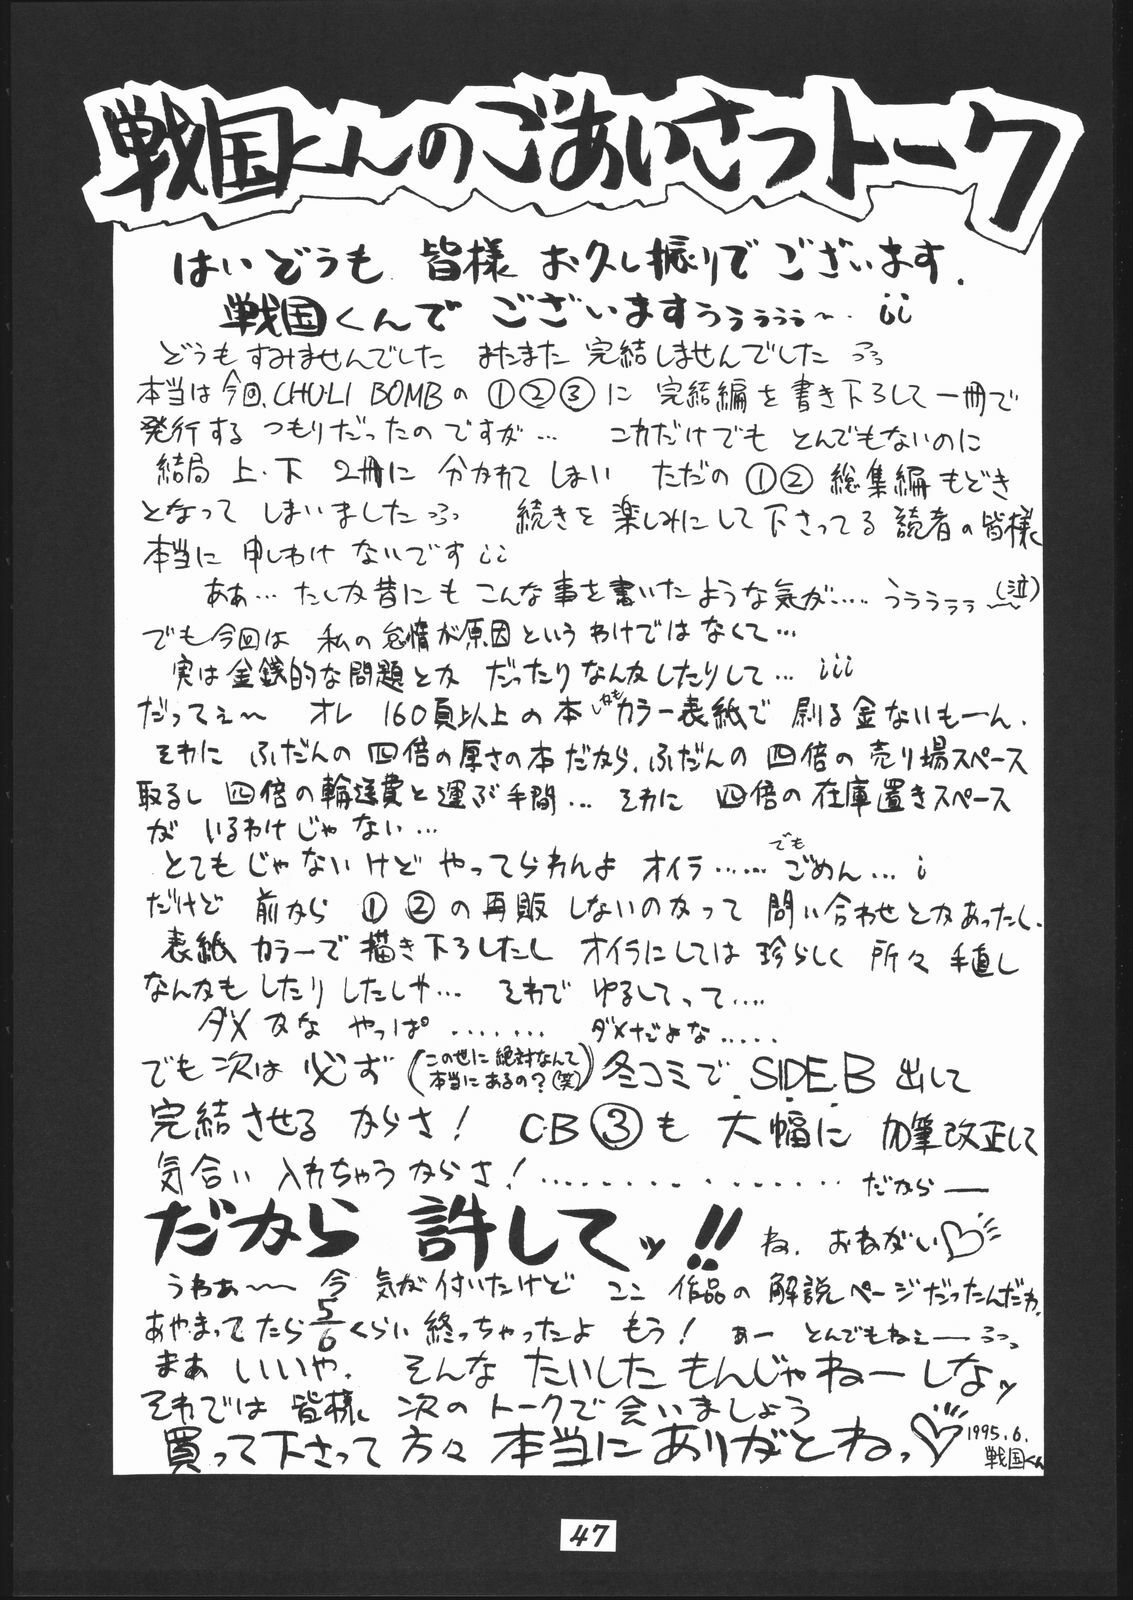 戦国くんのごあいさつトーク
はいどうも 皆様 お久し振りでございます.
戦国くんで ございますぅぅぅぅぅ〜.
どうもすみませんでした またまた 完結しませんでした
本当は今回、CHU・LI BOMBの ①②③に 完結編を書き下ろして一冊で
発行する つもりだったのですが… これだけでも とんでもないのに
結局 上・下 2冊に 分かれて しまい ただの ①② 総集編もどき
となって しまいました 続きを 楽しみにして下さってる 読者の皆様
本当に 申しわけ ないです
ああ… たしか昔にも こんな事を書いたような気が…. うぅぅぅぅ〜(泣)
でも今回は 私の怠惰が原因というわけではなくて…
実は金銭的な問題とか だったりなんかしたりして…
だってぇ〜 オレ 160頁以上の本 しかもカラー表紙で 刷る金ないもーん.
それに ふだんの 四倍の厚さの本だから、ふだんの 四倍の売り場スペース
取るし 四倍の輸送費と運ぶ手間… それに 四倍の在庫置きスペース
が いるわけじゃない…
とてもじゃないけど やってられんよ オイラ…… でもごめん…
だけど 前から ①②の再販 しないのかって 問い合わせとかあったし.
表紙 カラーで描き下ろしたし オイラにしては 珍らしく 所々 手直し
なんかも したりしたしゃ… それで ゆるしてって….
ダメかな やっぱ ....... ダメだよな.....
でも次は 必ず (この世に絶対なんて本当にあるの?(笑)) 冬コミで SIDE.B 出して
完結させる からさ! C・B③も 大幅に 加筆改正して
気合い 入れちゃうからさ!............... だから―
だから 許してッ!! ね、おねがい♡
うわぁ〜 今 気が付いたけど ここ 作品の 解説ページだったんだわ.
あやまってたら5/6くらい終っちゃったよ もう! あー とんでもねぇー
まあ いいや. そんな たいした もんじゃねーしなッ
それでは 皆様 次の トークで 会いましょう
買って下さって方々 本当にありがとねっ♡ 1995.6.
戦国くん
47